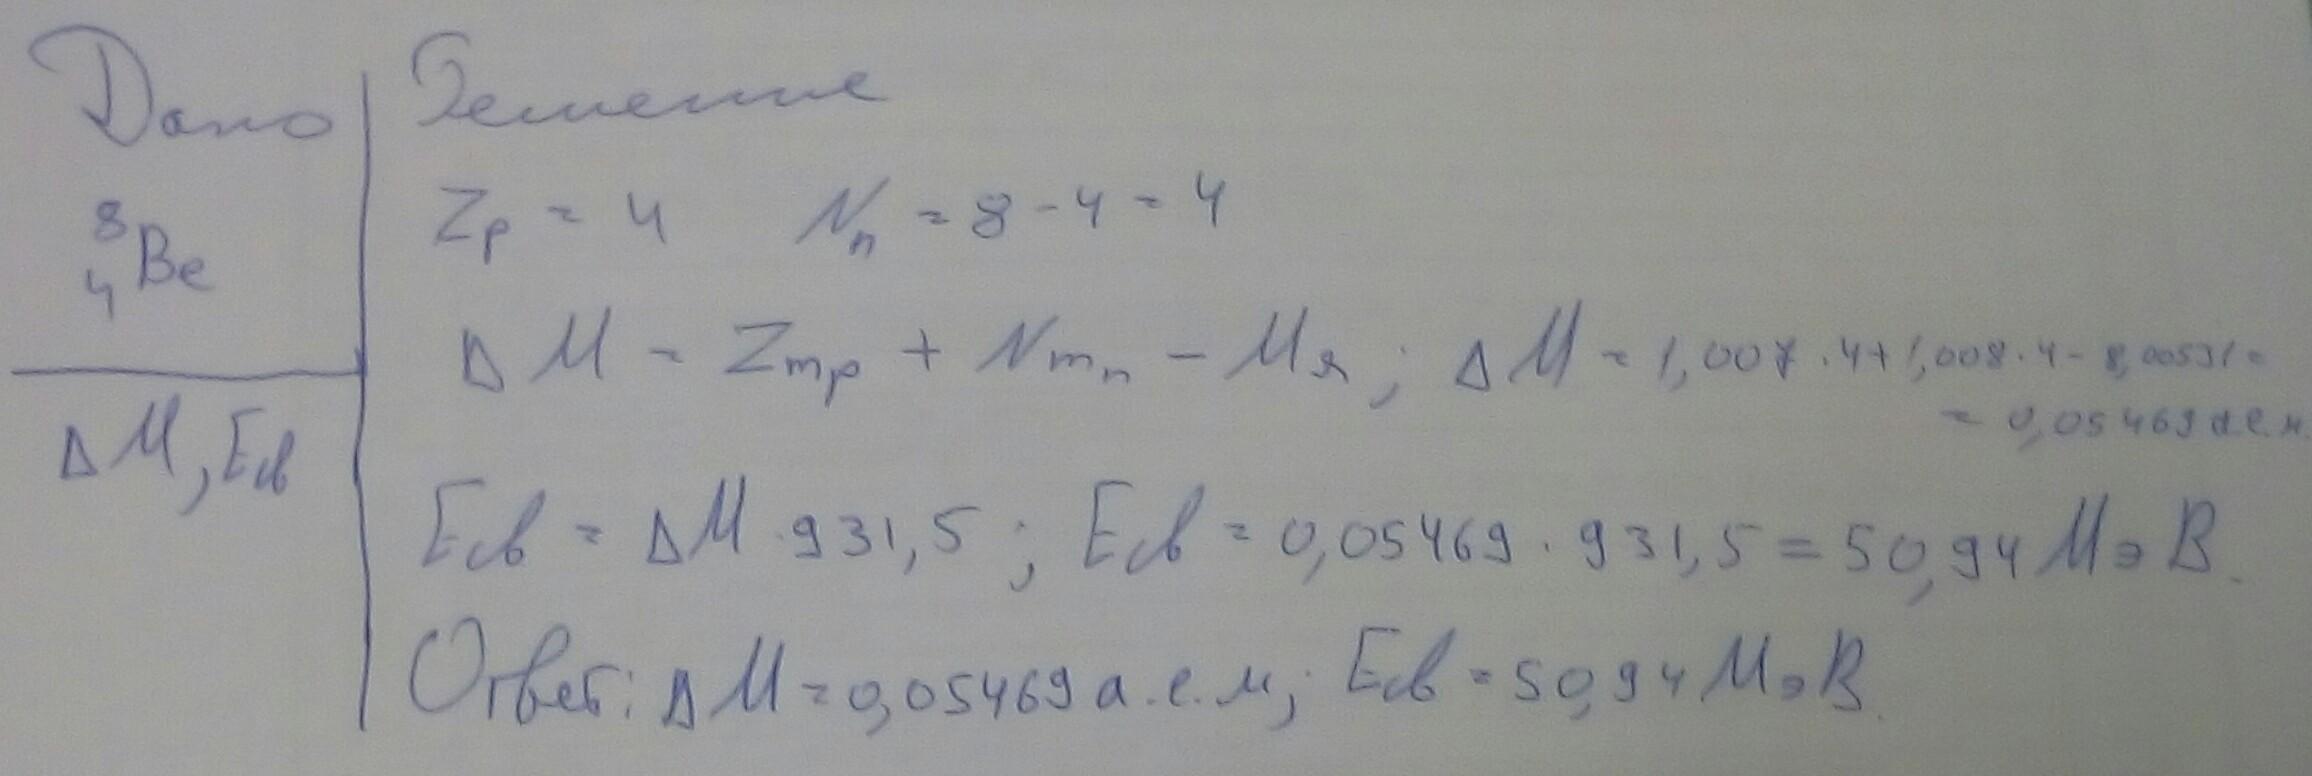 Дано
⁸₄Be
ΔM, Eсв
Решение
Zp = 4 Nn = 8 - 4 = 4
ΔM = Zmp + Nmn - Mя; ΔM = 1,007 · 4 + 1,008 · 4 - 8,00531 =
= 0,05469 а.е.м.
Eсв = ΔM · 931,5; Eсв = 0,05469 · 931,5 = 50,94 МэВ.
Ответ: ΔM = 0,05469 а.е.м; Eсв = 50,94 МэВ.